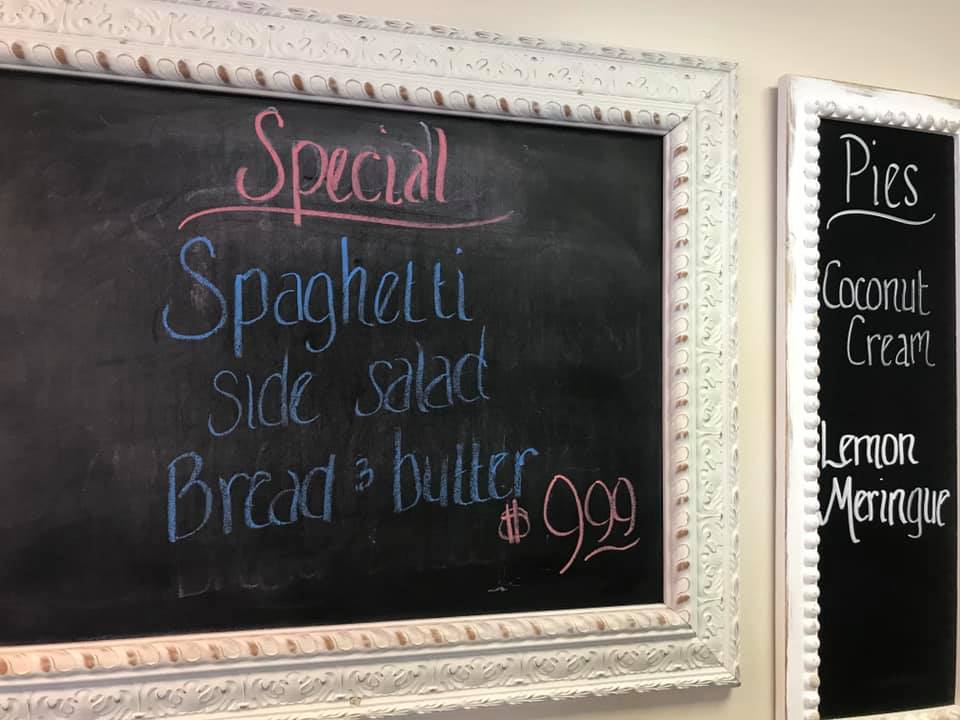 Special
Spaghetti
side salad
Bread & butter
$9.99
Pies
Coconut
Cream
Lemon
Meringue